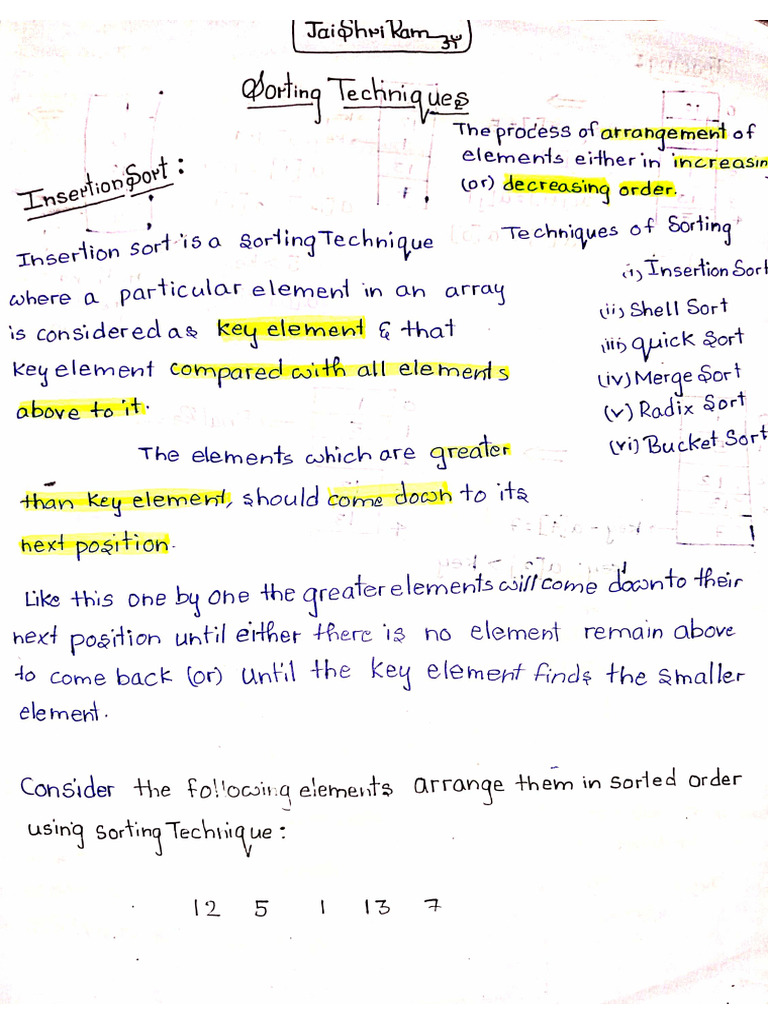 Jai Shri Ram
Sorting Techniques
The process of arrangement of
elements either in increasin
(or) decreasing order.
Insertion Sort:
Insertion sort is a Sorting Technique
where a particular element in an array
is considered as key element & that
key element compared with all elements
above to it.
Techniques of Sorting
(i) Insertion Sort
(ii) Shell Sort
(iii) quick Sort
(iv) Merge Sort
(v) Radix Sort
(vi) Bucket Sort
The elements which are greater
than key element, should come down to its
next position.
Like this one by one the greater elements will come down to their
next position until either there is no element remain above
to come back (or) until the key element finds the smaller
element.
Consider the following elements arrange them in sorted order
using sorting Technique:
12 5 1 13 7